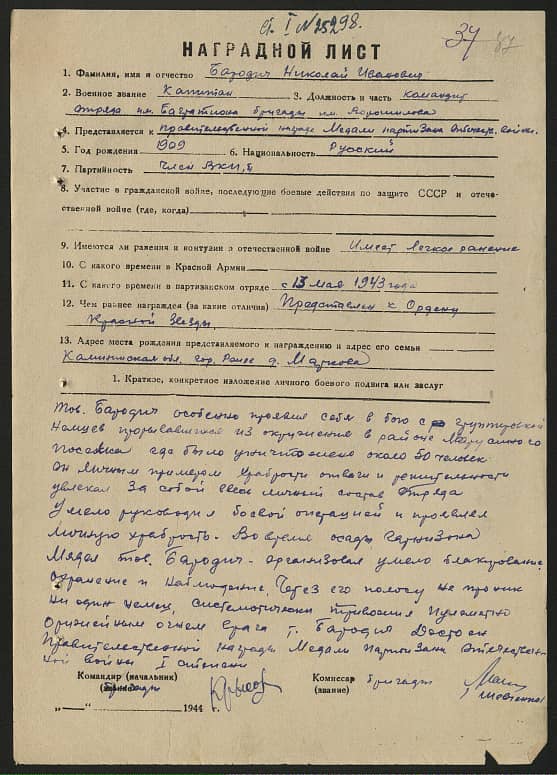 О. I №25298.
37 87
НАГРАДНОЙ ЛИСТ
1. Фамилия, имя и отчество Бародич Николай Иванович
2. Военное звание Капитан 3. Должность и часть командир
отряда им. Багратиона бригады им. Ворошилова
4. Представляется к правительственной награде Медали партизана Отечеств. войны.
5. Год рождения 1909 6. Национальность Русский
7. Партийность Член ВКП/б
8. Участие в гражданской войне, последующие боевые действия по защите СССР и отече-
ственной войне (где, когда)
9. Имеются ли ранения и контузии в отечественной войне Имеет легкое ранение
10. С какого времени в Красной Армии
11. С какого времени в партизанском отряде с 13 мая 1943 года
12. Чем раннее награжден (за какие отличия) Представлен к Ордену
Красной Звезды
13. Адрес места рождения представляемого к награждению и адрес его семьи
Калининская обл. гор. д. Маркова
1. Краткое, конкретное изложение личного боевого подвига или заслуг
тов. Бародич особенно проявил себя в бою с группировкой
немцев прорывавшихся из окружения в районе
где было уничтожено около 50 человек
Он личным примером храбрости отваги и решительности
увлекал за собой весь личный состав отряда
Умело руководил боевой операцией и проявлял
личную храбрость. Во время осады гарнизона
Мядел тов. Бародич организовал умело блокирование
охранение и наблюдение. Через его полосу не проник
ни один немец, систематически тревожил пулеметно
оружейным огнем врага т. Бародич Достоен
Правительственной награды Медали Партизан Отечествен-
ной войны I степени
Командир (начальник) Комиссар бригады
бригады (звание)
„—“ 1944 г.